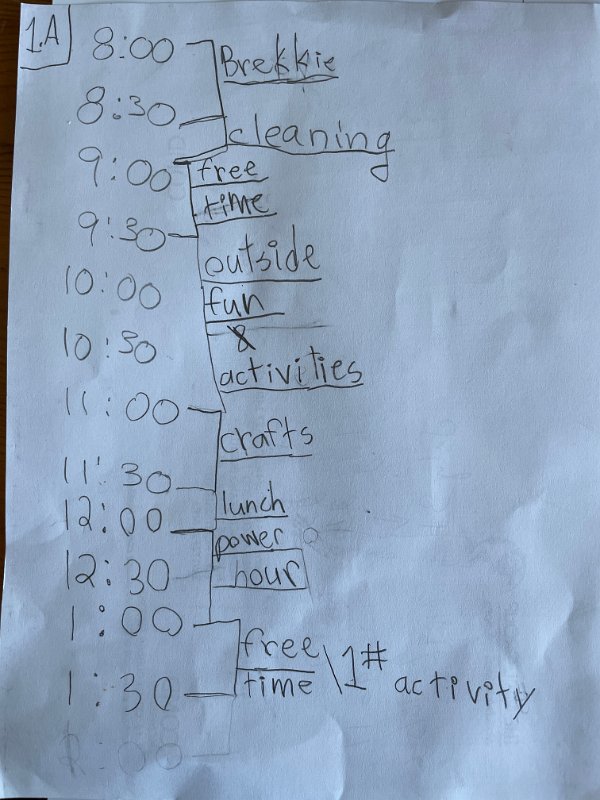 1.A
8:00
Brekkie
8:30
cleaning
9:00
free
time
9:30
outside
10:00
fun
&
10:30
activities
11:00
crafts
11:30
lunch
12:00
power
12:30
hour
1:00
free
1:30
time \ 1# activity
2:00